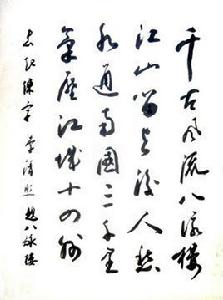 千古風流八詠樓
江山留与後人愁
水通南國三千里
氣壓江城十四州
李清照題八詠樓